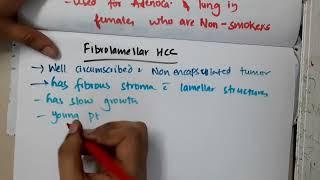 - used for Adenoca. of lung in
females who are Non-smokers
Fibrolamellar HCC
→ Well circumscribed & Non encapsulated tumor
→ has fibrous stroma c̄ lamellar structures
- has slow growth
- young Pt